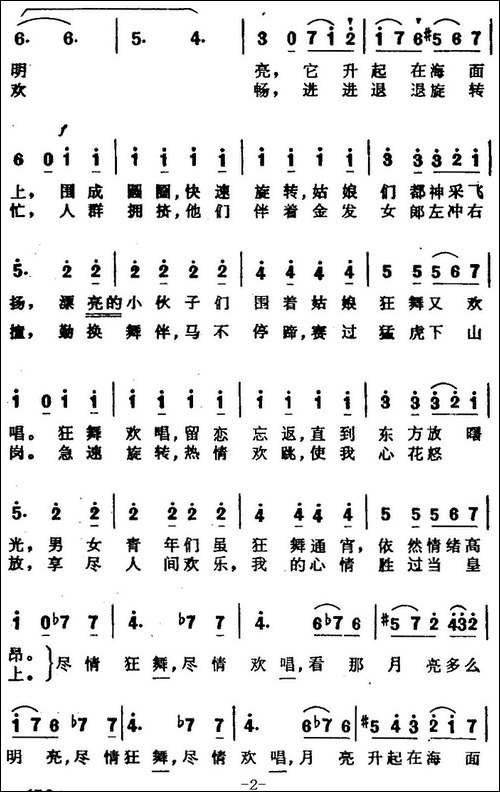 6. 6. | 5. 4. | 3 0 7 i 2 | i 7 6 #5 6 7 |
明 亮，它升起在海面
欢 畅，进进退退旋转
f
6 0 i i | i i i i | i i i i | 3 3 3 2 i |
上，围成圆圈，快速旋转，姑娘们都神采飞
忙，人群拥挤，他们伴着金发女郎左冲右
5. 2 2 | 2 2 2 2 | 4 4 4 4 | 5 5 5 6 7 |
扬，漂亮的小伙子们围着姑娘狂舞又欢
撞，勤换舞伴，马不停蹄，赛过猛虎下山
i 0 i i | i i i i | i i i i | 3 3 3 2 i |
唱。狂舞欢唱，留恋忘返，直到东方放曙
岗。急速旋转，热情欢跳，使我心花怒
5. 2 2 | 2 2 2 2 | 4 4 4 4 | 5 5 5 6 7 |
光，男女青年们虽狂舞通宵，依然情绪高
放，享尽人间欢乐，我的心情胜过当皇
i 0 b7 7 | 4. b7 7 | 4. 6 b7 6 | #5 7 2 4 3 2 |
昂。
上。
尽情狂舞，尽情欢唱，看那月亮多么
i 7 6 b7 7 | 4. b7 7 | 4. 6 i 6 | #5 4 3 2 i 7 |
明亮，尽情狂舞，尽情欢唱，月亮升起在海面
-2-